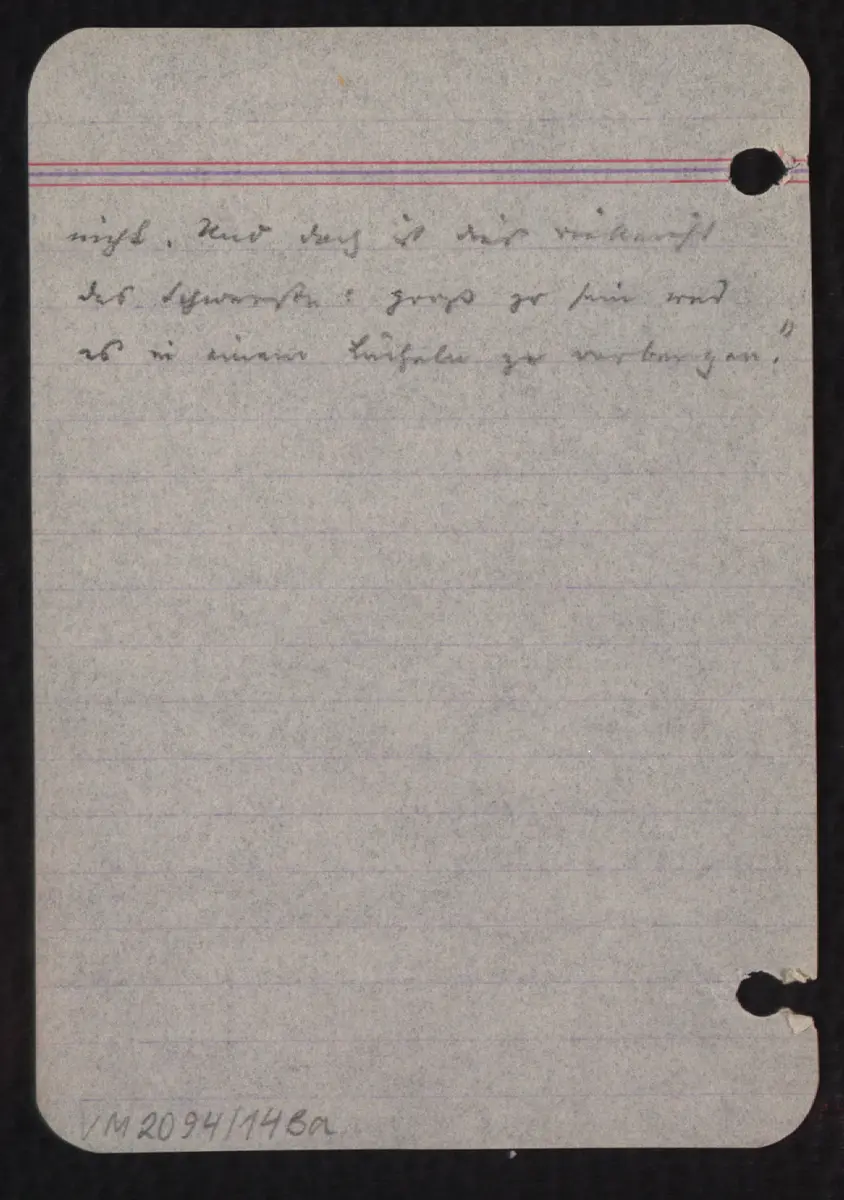 nicht. Und doch ist dies vielleicht
das Schwerste: groß zu sein und
es in einem Lächeln zu verbergen."
VM 2094/14Ba